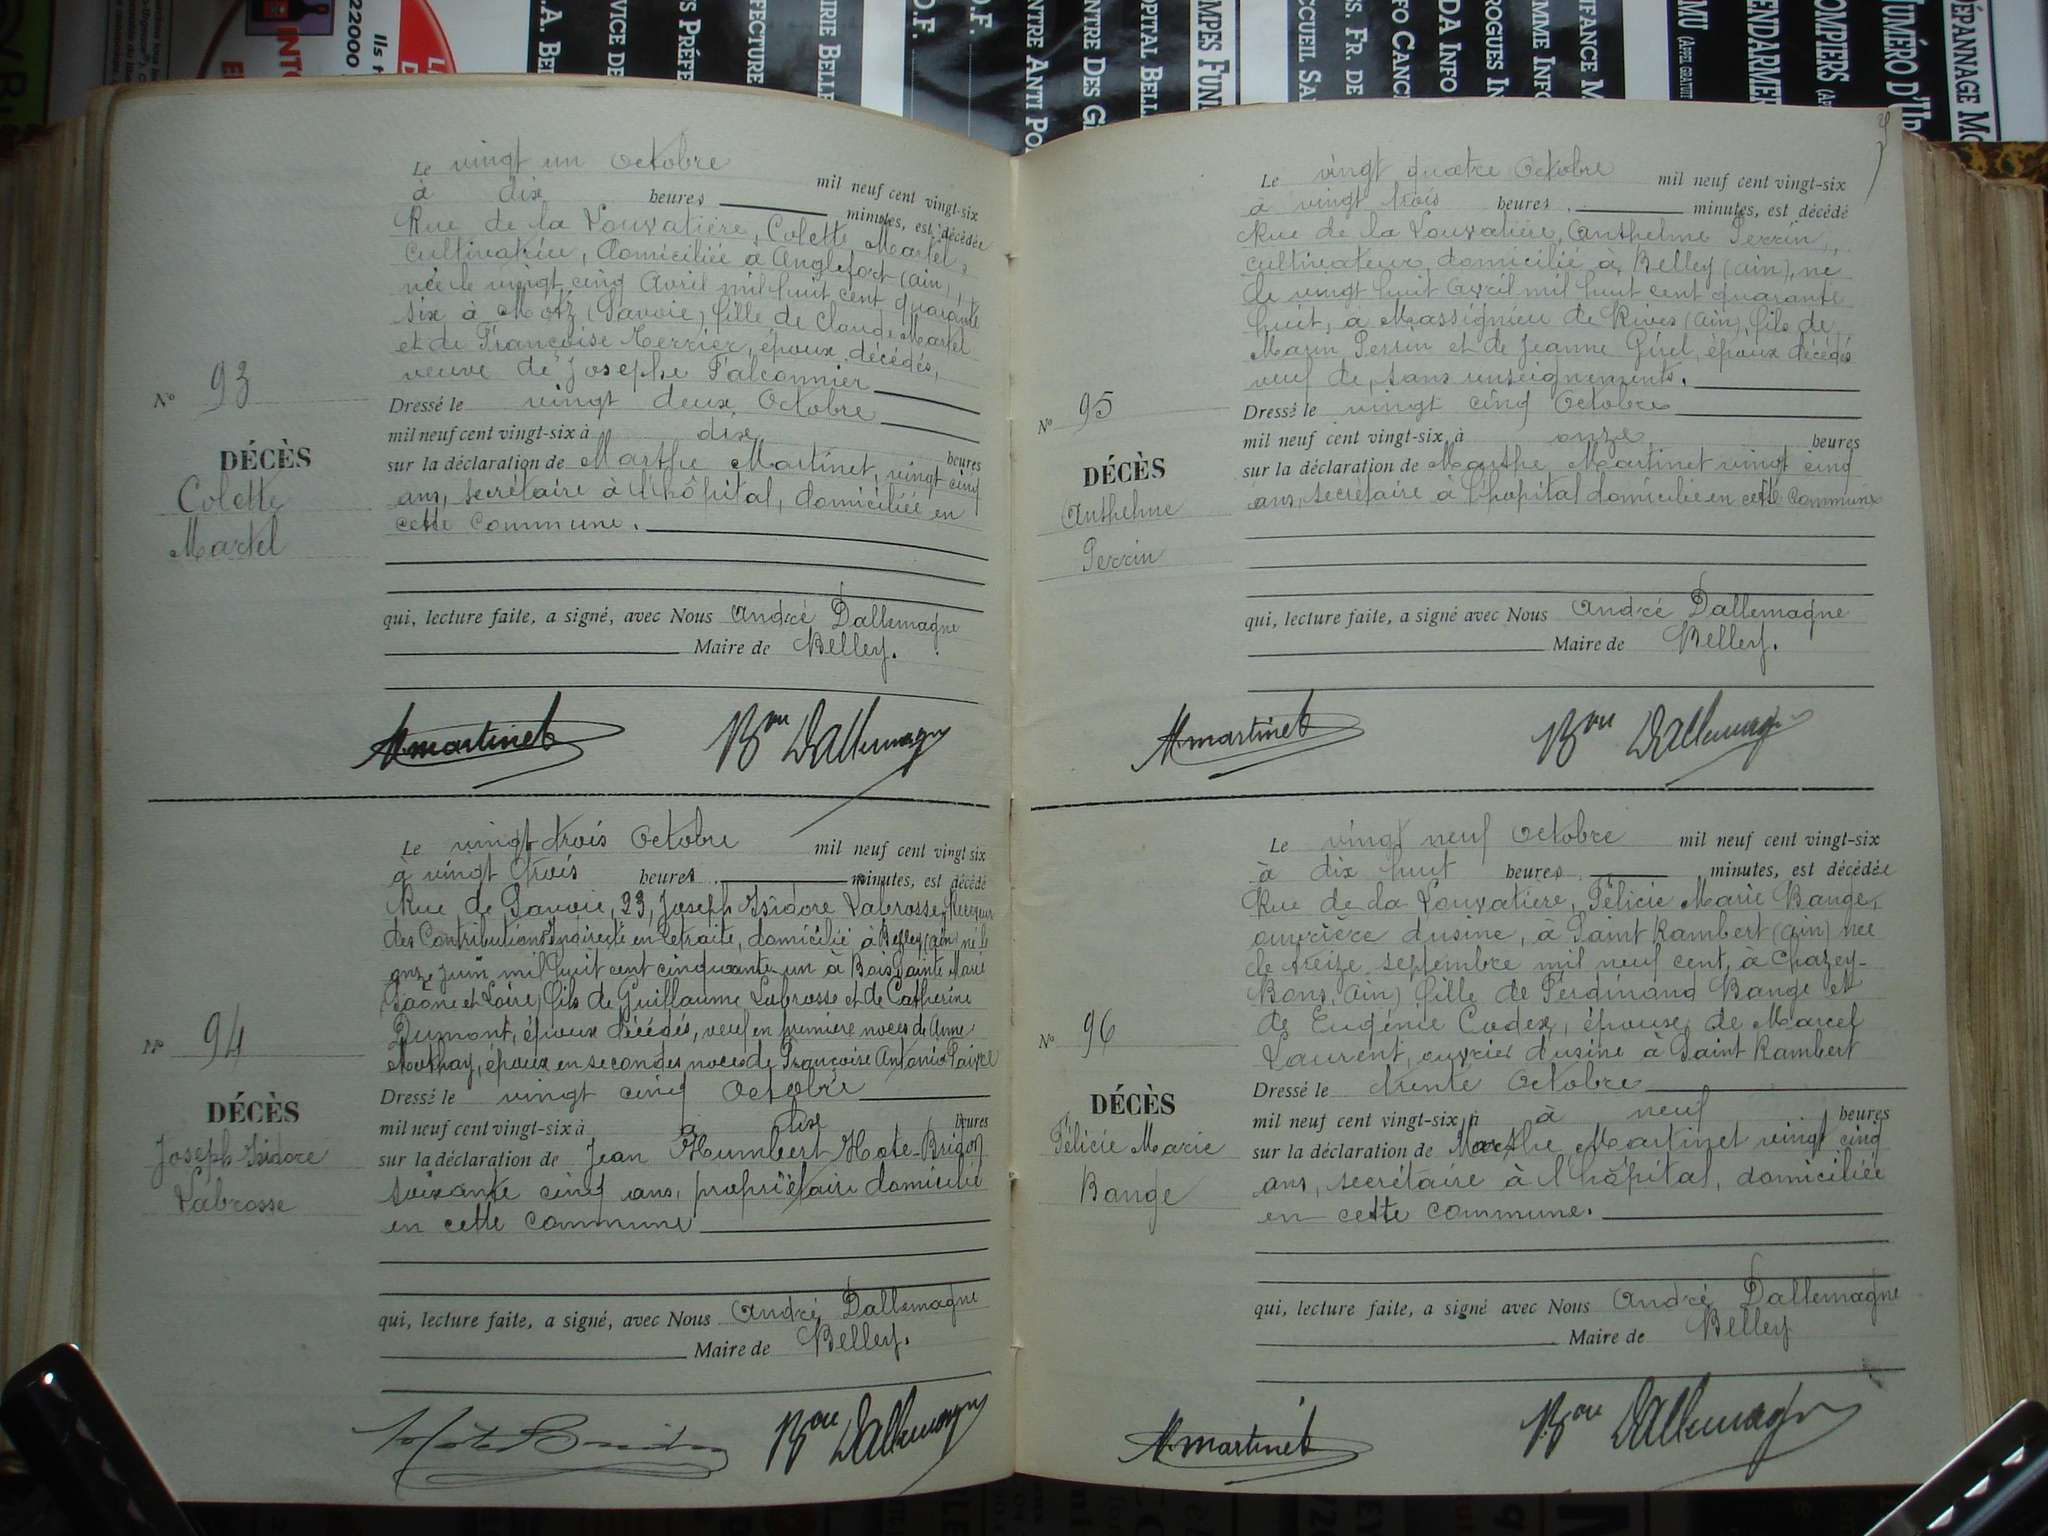 Le vingt un Octobre mil neuf cent vingt-six
à dix heures minutes, est décédée
Rue de la Louvatière, Colette Martel,
cultivatrice, domiciliée à Anglefort (Ain),
née le vingt cinq Avril mil huit cent quarante
six à Motz (Savoie) fille de Claude Martel
et de Françoise Terrier, époux décédés,
veuve de Josephe Falconnier
Nº 93
DÉCÈS
Colette
Martel
Dressé le vingt deux Octobre
mil neuf cent vingt-six à dix heures
sur la déclaration de Marthe Martinet, vingt cinq
ans, secrétaire à l'hôpital, domiciliée en
cette commune.
qui, lecture faite, a signé, avec Nous André Dallemagne
Maire de Belley.
Martinet Bon Dallemagne
Le vingt trois Octobre mil neuf cent vingt-six
à vingt trois heures minutes, est décédé
Rue de Savoie, 23, Joseph Isidore Labrosse, Receveur
des Contributions Indirecte en retraite, domicilié à Belley (Ain) né le
onze Juin mil huit cent cinquante un à Bois Sainte Marie
(Saône et Loire) fils de Guillaume Labrosse et de Catherine
Dumont, époux décédés, veuf en première noces de Anne
époux en secondes noces de Françoise Antonia
Nº 94
DÉCÈS
Joseph Isidore
Labrosse
Dressé le vingt cinq Octobre
mil neuf cent vingt-six à à dix heures
sur la déclaration de Jean Humbert Hote-Bridon
soixante cinq ans, propriétaire domicilié
en cette commune
qui, lecture faite, a signé, avec Nous André Dallemagne
Maire de Belley.
Bon Dallemagne
Le vingt quatre Octobre mil neuf cent vingt-six
à vingt trois heures minutes, est décédé
Rue de la Louvatière, Anthelme Perrin,
cultivateur, domicilié à Belley (Ain), né
le vingt huit Avril mil huit cent quarante
huit, à Massignieu de Rives (Ain), fils de
Marin Perrin et de Jeanne Girel, époux décédés
veuf de, sans renseignements.
Nº 95
DÉCÈS
Anthelme
Perrin
Dressé le vingt cinq Octobre
mil neuf cent vingt-six à onze heures
sur la déclaration de Marthe Martinet vingt cinq
ans, secrétaire à l'hôpital domiciliée en cette commune
qui, lecture faite, a signé avec Nous André Dallemagne
Maire de Belley.
Martinet Bon Dallemagne
Le vingt neuf Octobre mil neuf cent vingt-six
à dix huit heures minutes, est décédée
Rue de la Louvatière, Félicie Marie Bange,
ouvrière d'usine, à Saint Rambert (Ain) née
le treize septembre mil neuf cent, à Chazey-
Bons, (Ain) fille de Ferdinand Bange et
de Eugénie Codex, épouse de Marcel
Laurent, ouvrier d'usine à Saint Rambert
Nº 96
DÉCÈS
Félicie Marie
Bange
Dressé le trente Octobre
mil neuf cent vingt-six à à neuf heures
sur la déclaration de Marthe Martinet vingt cinq
ans, secrétaire à l'hôpital, domiciliée
en cette commune.
qui, lecture faite, a signé avec Nous André Dallemagne
Maire de Belley
Martinet Bon Dallemagne